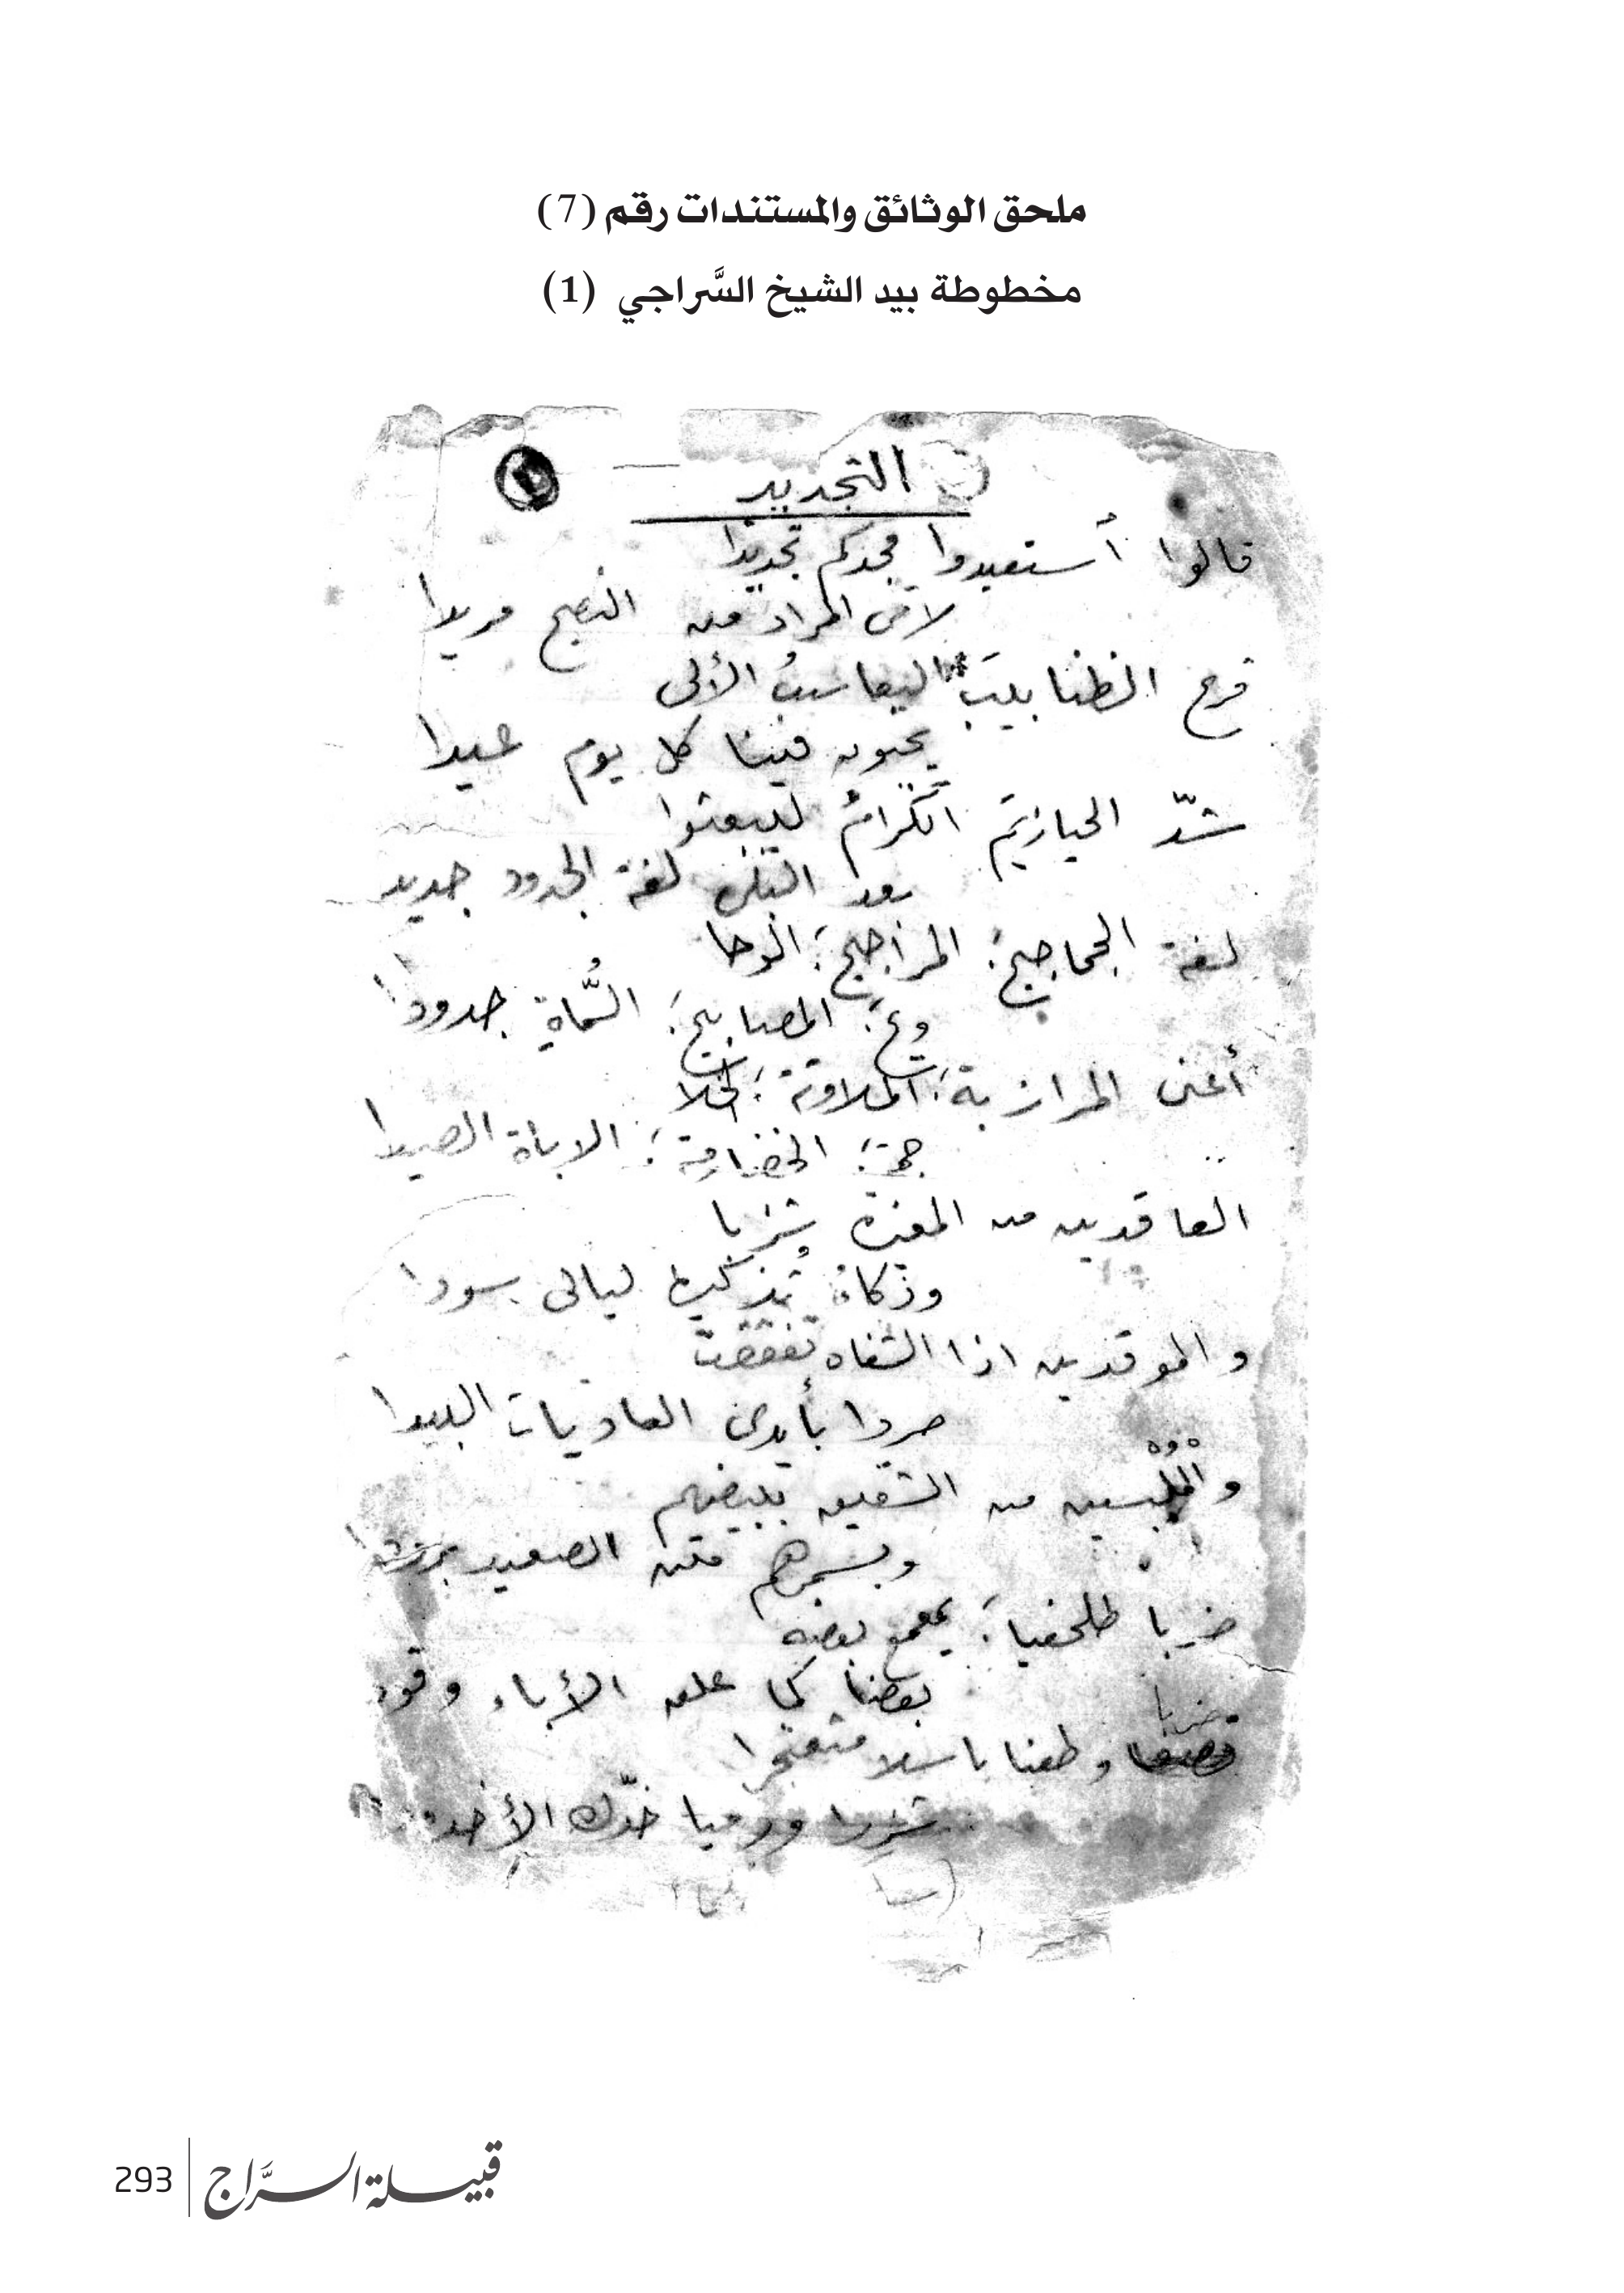 ملحق الوثائق والمستندات رقم (7)
مخطوطة بيد الشيخ السَّراجي (1)
التجديد
قالوا أستعيدوا مجدكم تجديدا
لاقى المراد من النصح مريدا
قرع الظنابيبَ اليعاسيبُ الألى
يحيون فينا كل يوم عيدا
شدّ الحيازيمَ الكرامُ ليبعثوا
بعد لغة الجدود جديدا
لغة الجحاجح؛ المراجيح؛ الوحا
وح؛ المصابيح؛ السُّماةِ جدودا
أعنى المرازبة؛ الملاوثة؛ الخلا
جمة؛ الخضارمة؛ الاباة الصيدا
العاقدين من شزبا
وذكاءُ ليالى سودا
والموقدين اذا الشفاه
بأيدى العاديات البيدا
والمُلْبسين من الشقيق بيضهم
وبسمرهم متن الصعيد
ضربا طلحفيا؛ بعضه
بعضا كما علق الأباء وقود
ضربا وطعنا باسلا مثعنجرا
شزرا ورميا خدّد الأخدود
293
قبيلة السرَّاج